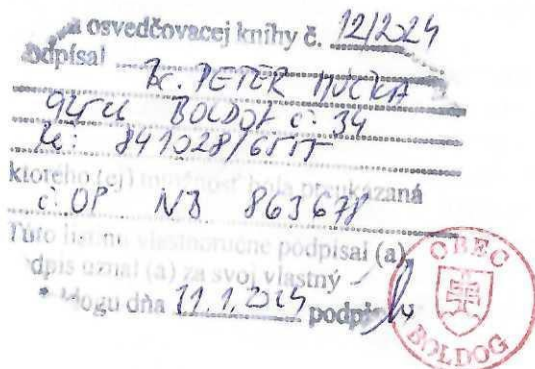 a osvedčovacej knihy č. 12/2024
odpísal
Bc. PETER HUČKA
BOLDOG č. 34
841028/
ktorého (cj) totožnosť bola preukázaná
č. OP NB 863678
Túto listinu vlastnoručne podpísal (a),
odpis uznal (a) za svoj vlastný
logu dňa 11.1.2024 podpis
OBEC
BOLDOG